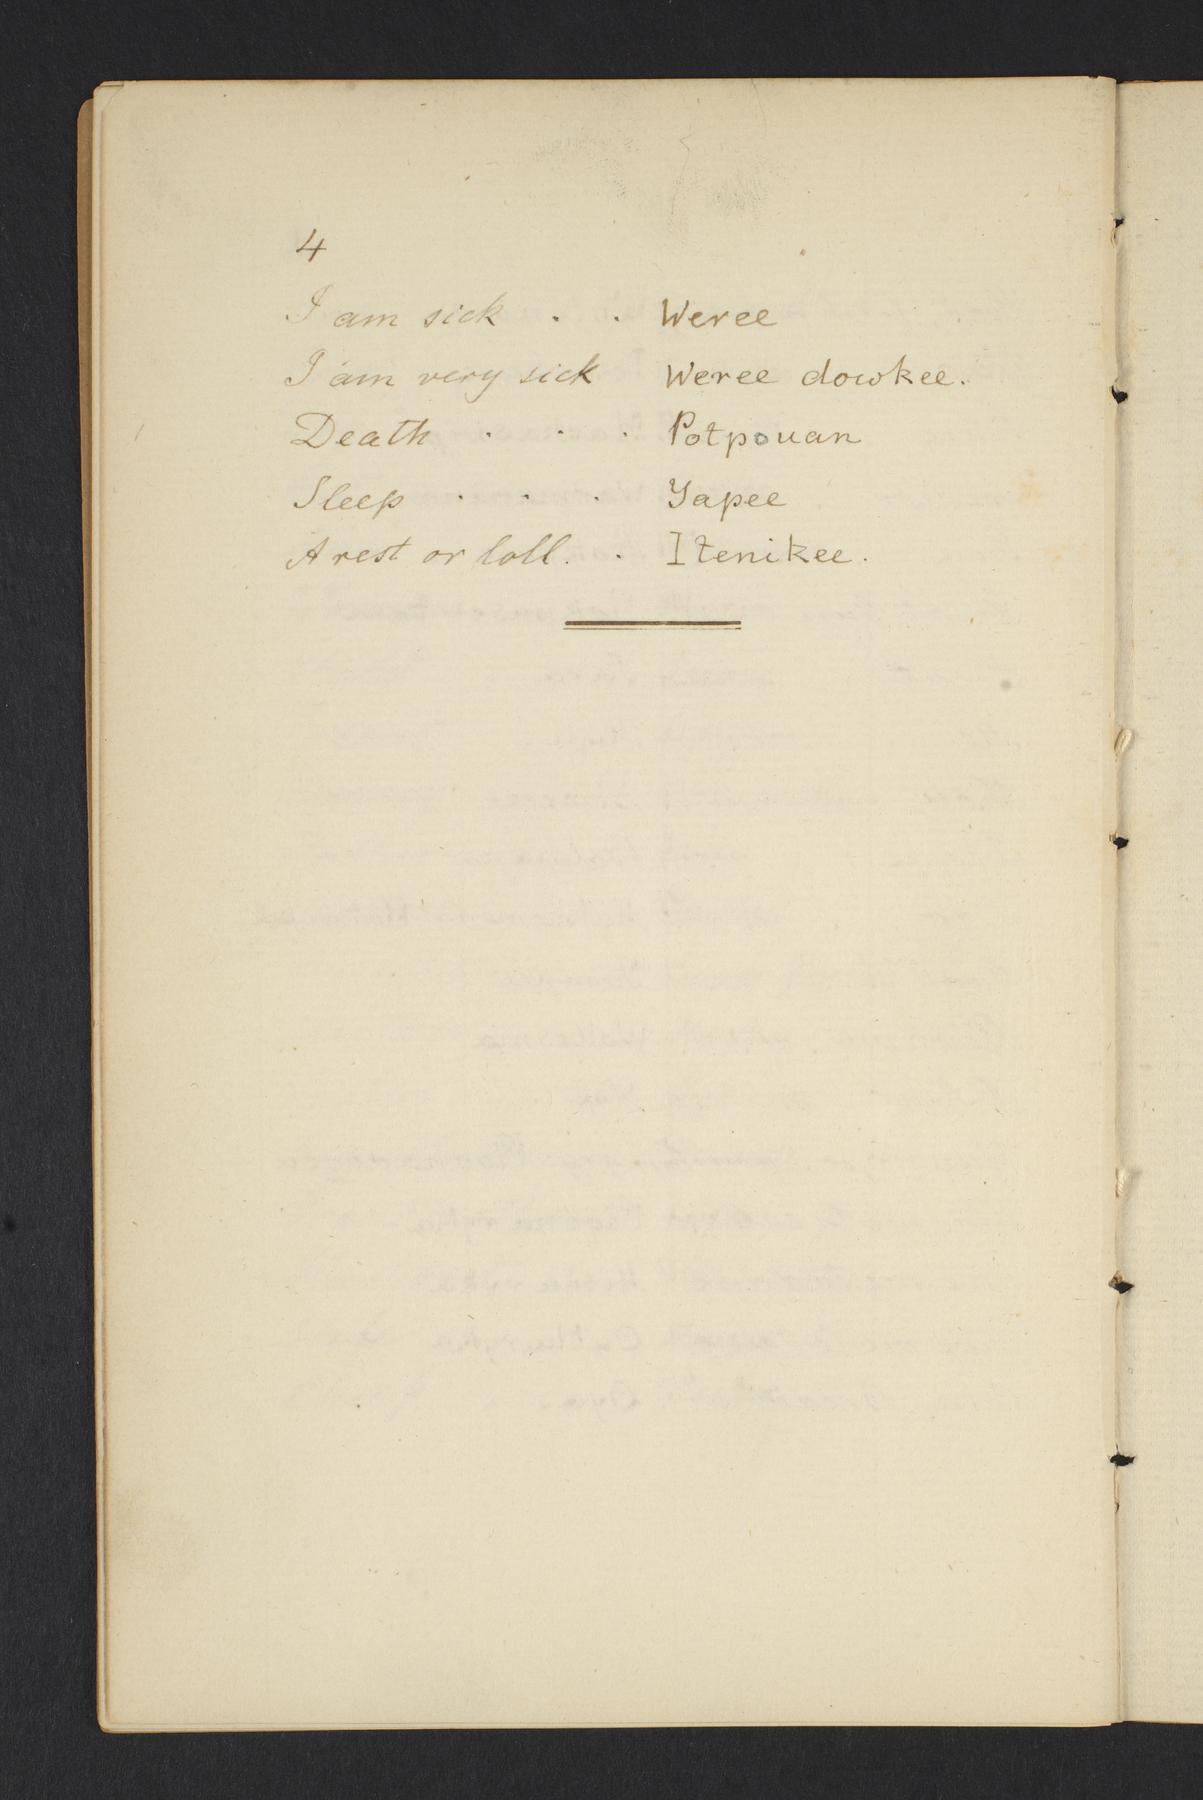 4
I am sick . . Weree
I am very sick Weree dowkee.
Death . . . Potpouan
Sleep . . . Yapee
A rest or loll. . Itenikee.